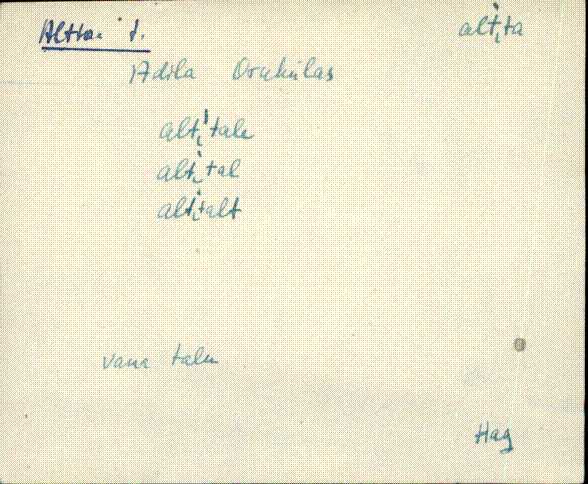 Altta t.
alt̀ᵢta
Adila Orakülas
alt̀ᵢtale
alt̀ᵢtal
alt̀ᵢtalt
vana talu
Hag